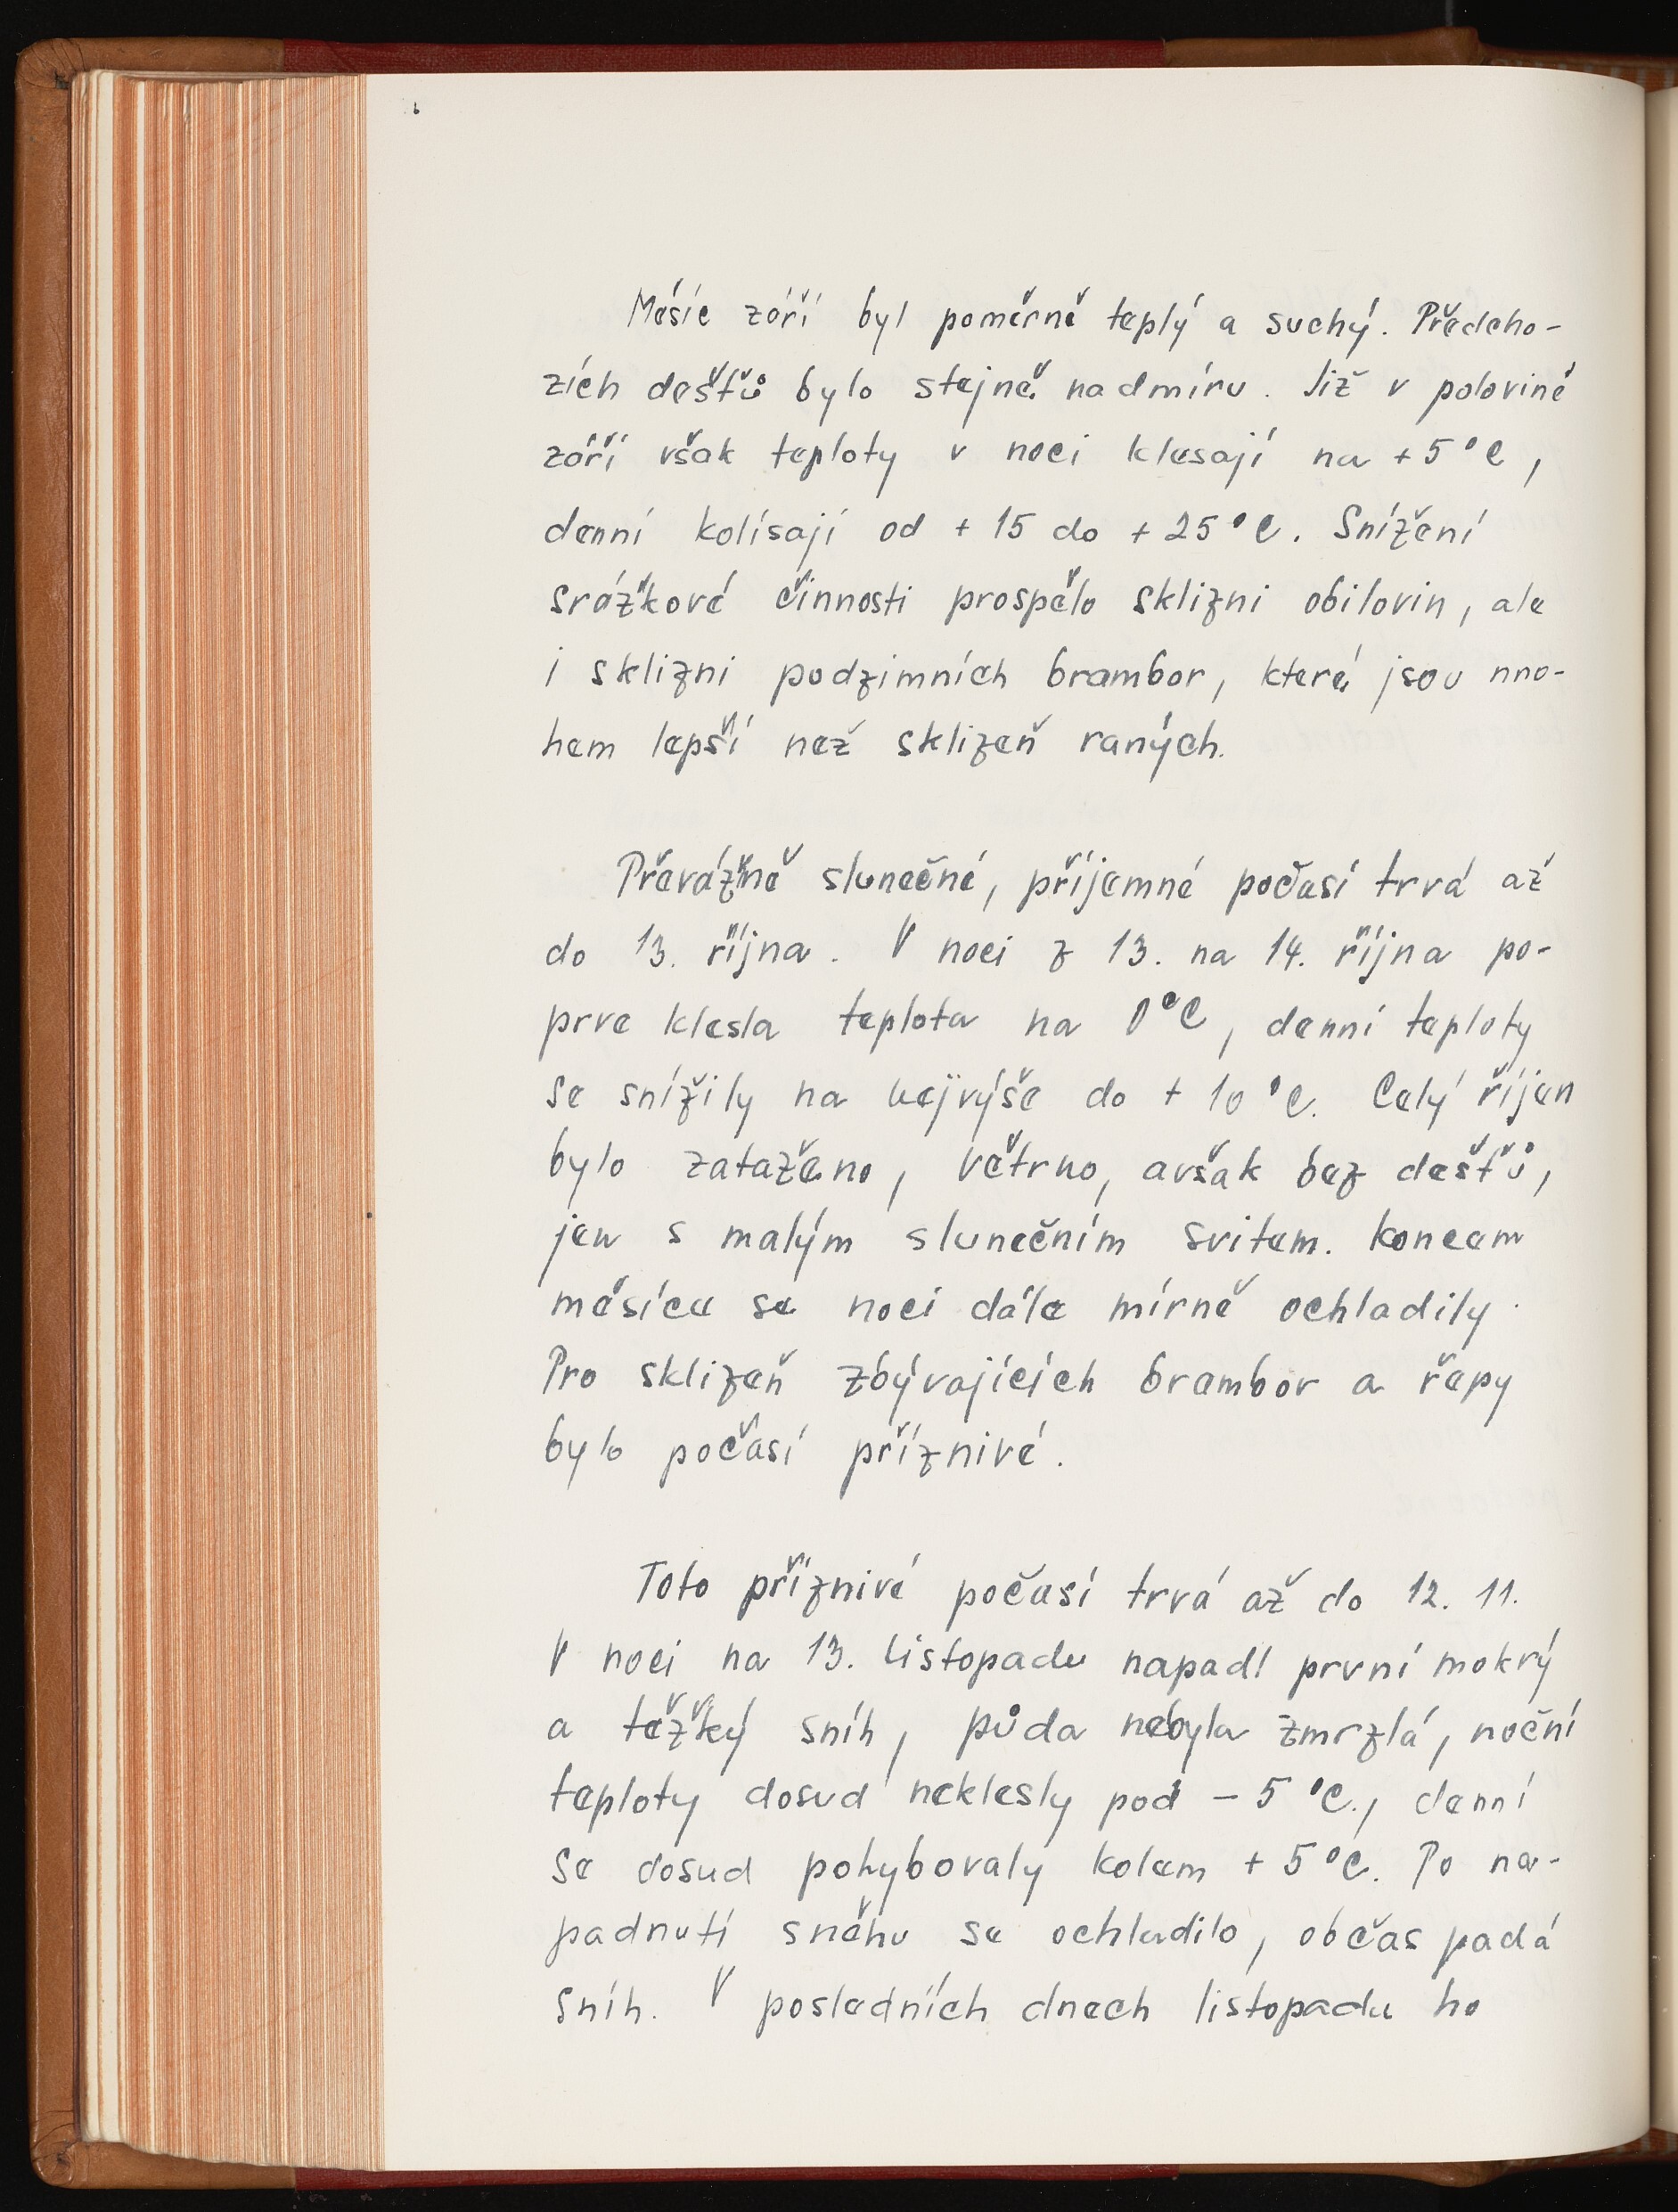 Měsíc září byl poměrně teplý a suchý. Předcho-
zích dešťů bylo stejně nadmíru. Již v polovině
září však teploty v noci klesají na +5°C,
denní kolísají od +15 do +25°C. Snížení
srážkové činnosti prospělo sklizni obilovin, ale
i sklizni podzimních brambor, které jsou mno-
hem lepší než sklizeň raných.
Převážně slunečné, příjemné počasí trvá až
do 13. října. V noci z 13. na 14. října po-
prve klesla teplota na 0°C, denní teploty
se snížily na nejvýše do +10°C. Celý říjen
bylo zataženo, větrno, avšak bez dešťů,
jen s malým slunečním svitem. Koncem
měsíce se noci dále mírně ochladily.
Pro sklizeň zbývajících brambor a řepy
bylo počasí příznivé.
Toto příznivé počasí trvá až do 12. 11.
V noci na 13. listopadu napadl první mokrý
a těžký sníh, půda nebyla zmrzlá, noční
teploty dosud neklesly pod -5°C., denní
se dosud pohybovaly kolem +5°C. Po na-
padnutí sněhu se ochladilo, občas padá
sníh. V posledních dnech listopadu ho